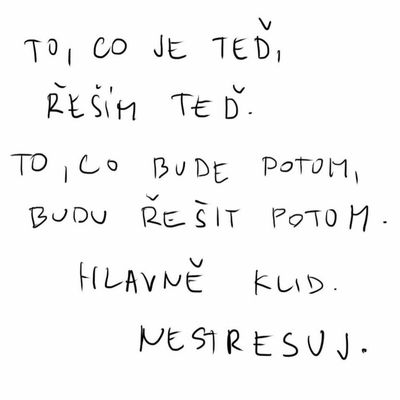 TO, CO JE TEĎ,
ŘEŠÍM TEĎ.
TO, CO BUDE POTOM,
BUDU ŘEŠIT POTOM.
HLAVNĚ KLID.
NESTRESUJ.